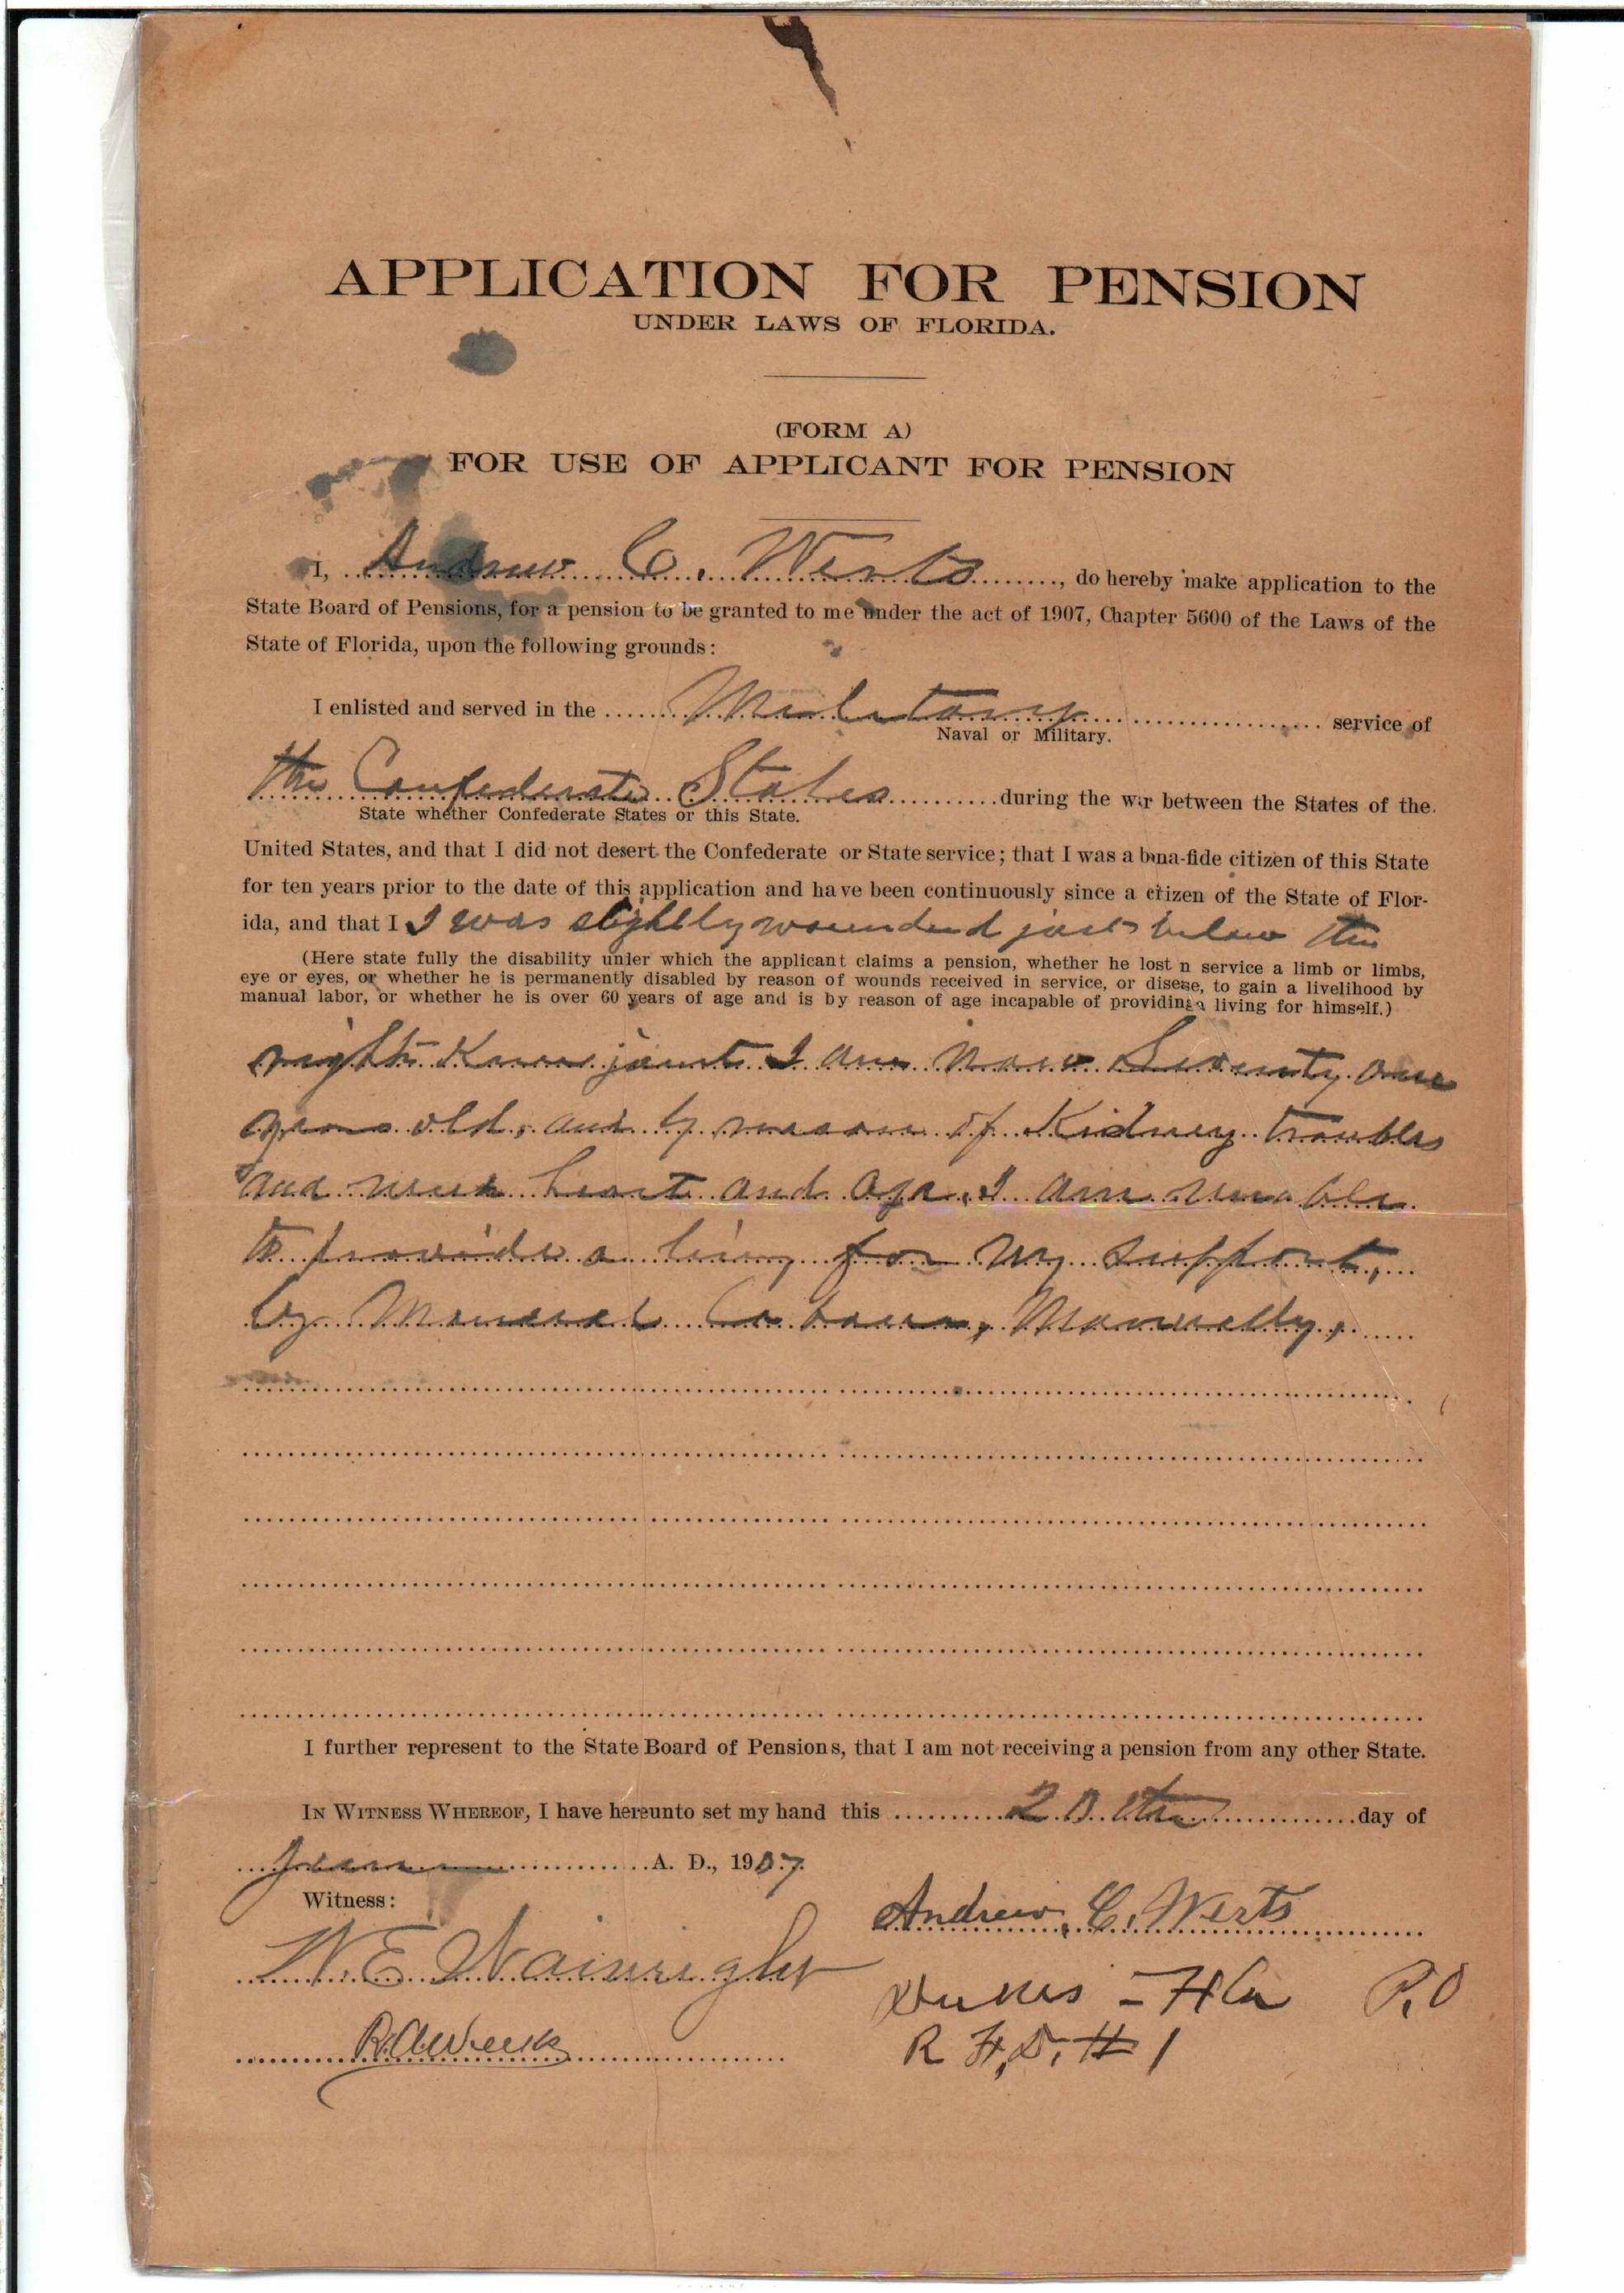 APPLICATION FOR PENSION
UNDER LAWS OF FLORIDA.
(FORM A)
FOR USE OF APPLICANT FOR PENSION
I, Andrew C. Werts, do hereby make application to the
State Board of Pensions, for a pension to be granted to me under the act of 1907, Chapter 5600 of the Laws of the
State of Florida, upon the following grounds:
I enlisted and served in the Military service of
Naval or Military.
the Confederate States during the war between the States of the
State whether Confederate States or this State.
United States, and that I did not desert the Confederate or State service; that I was a bona-fide citizen of this State
for ten years prior to the date of this application and have been continuously since a citizen of the State of Flor-
ida, and that I I was slightly wounded just below the
(Here state fully the disability under which the applicant claims a pension, whether he lost n service a limb or limbs,
eye or eyes, or whether he is permanently disabled by reason of wounds received in service, or disease, to gain a livelihood by
manual labor, or whether he is over 60 years of age and is by reason of age incapable of providing a living for himself.)
right Knee joint I am now Seventy one
years old, and by reason of Kidney troubles
and weak heart and age, I am unable
to provide a living for my support,
by Manual Labour, Manually,
I further represent to the State Board of Pensions, that I am not receiving a pension from any other State.
IN WITNESS WHEREOF, I have hereunto set my hand this 20th day of
June A. D., 1907.
Witness:
Andrew, C. Werts
W. E. Wainright
Dukes - Fla P.O
R. A. Weeks
R F, D. # 1